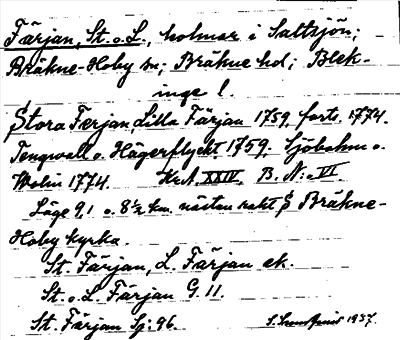 Färjan, St. o. L., holmar i Saltsjön;
Bräkne-Hoby sn; Bräkne hd; Blek-
inge l.
Stora Ferjan, Lilla Färjan 1759. fort. 1774.
Tengwall o. Hägerflycht 1759. Sjöbohm o.
Wolin 1774. Krt XXIV, B. N: o VI.
Läge 9,1 o. 8 ½ km. nästan rakt S Bräkne-
Hoby kyrka.
St. Färjan, L. Färjan ek.
St. o. L. Färjan G 11.
St. Färjan Sj: 96. 1937.